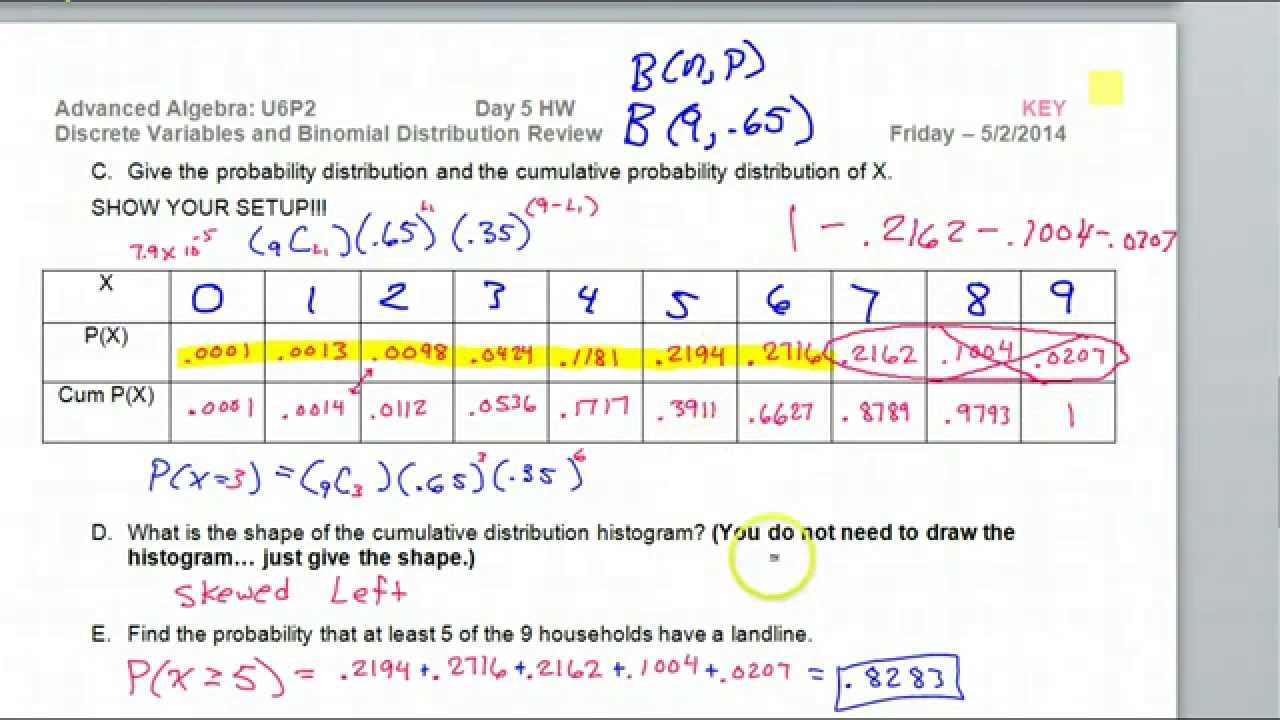 B(n,p)
Advanced Algebra: U6P2 Day 5 HW KEY
Discrete Variables and Binomial Distribution Review B(9,.65) Friday – 5/2/2014
C. Give the probability distribution and the cumulative probability distribution of X.
SHOW YOUR SETUP!!!
7.9 x 10^-5 (9C4)(.65)^4 (.35)^(9-4) 1 - .2162 - .1004 - .0207
X 0 1 2 3 4 5 6 7 8 9
P(X) .0001 .0013 .0098 .0424 .1181 .2194 .2716 .2162 .1004 .0207
Cum P(X) .0001 .0014 .0112 .0536 .1717 .3911 .6627 .8789 .9793 1
P(x=3) = (9C3)(.65)^3(.35)^6
D. What is the shape of the cumulative distribution histogram? (You do not need to draw the
histogram... just give the shape.)
Skewed Left
E. Find the probability that at least 5 of the 9 households have a landline.
P(x ≥ 5) = .2194 + .2716 + .2162 + .1004 + .0207 = .8283